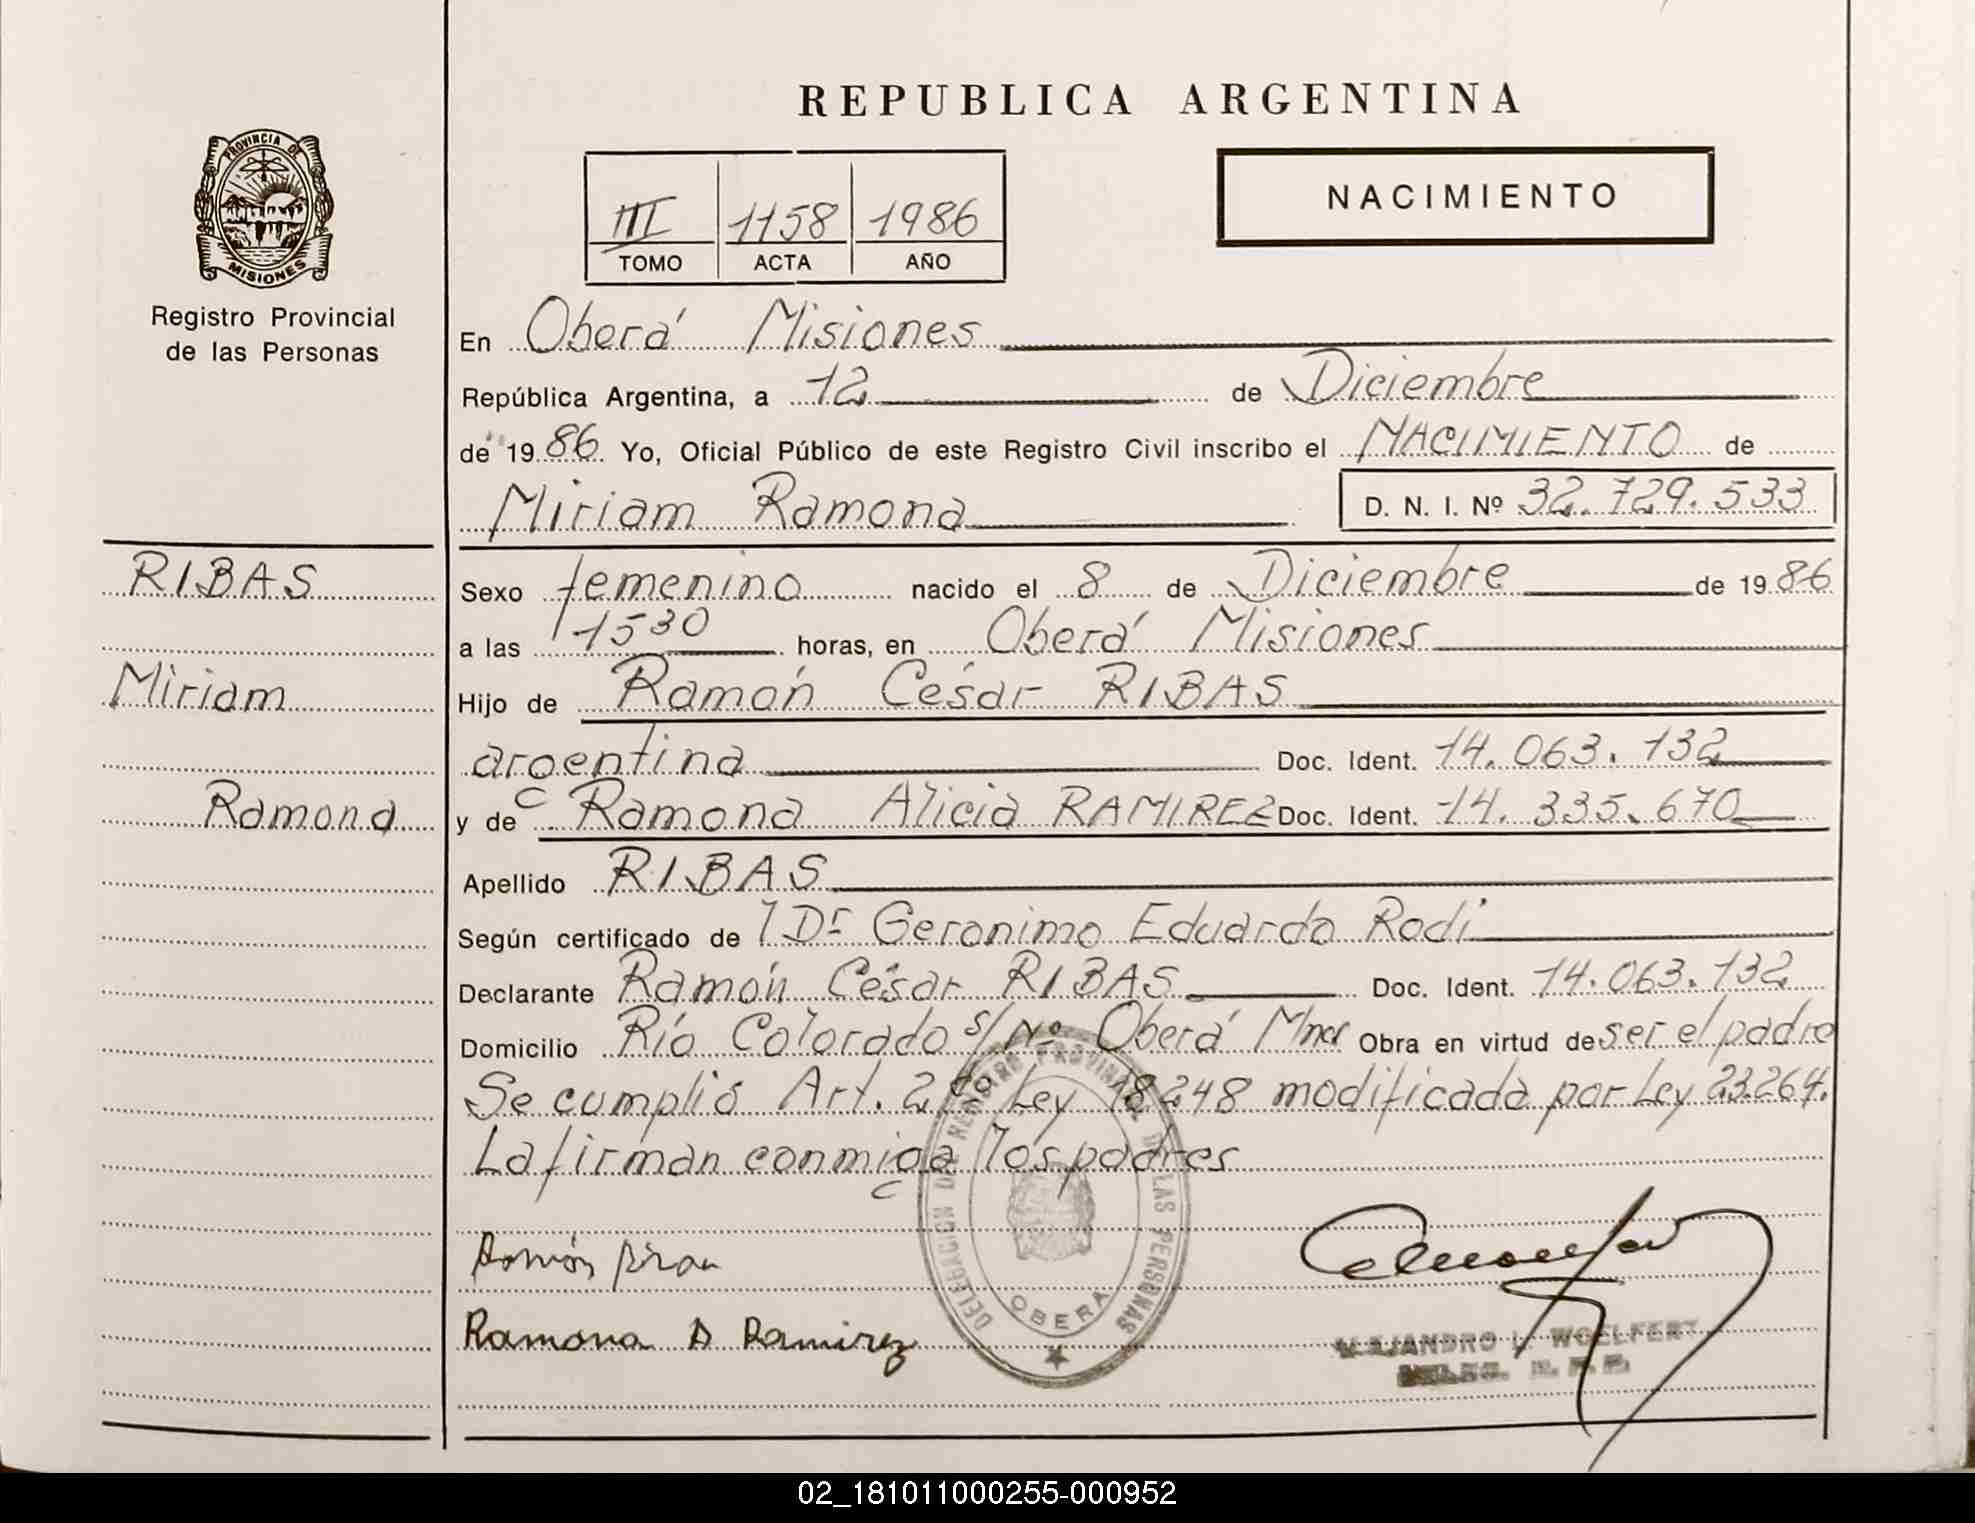 REPUBLICA ARGENTINA
PROVINCIA DE
MISIONES
Registro Provincial
de las Personas
III 1158 1986
TOMO ACTA AÑO
NACIMIENTO
En Oberá Misiones
República Argentina, a 12 de Diciembre
de 1986 Yo, Oficial Público de este Registro Civil inscribo el NACIMIENTO de
Miriam Ramona D. N. I. Nº 32.729.533
RIBAS
Miriam
Ramona
Sexo femenino nacido el 8 de Diciembre de 1986
a las 1530 horas, en Oberá Misiones
Hijo de Ramón César RIBAS
argentina Doc. Ident. 14.063.132
y de Ramona Alicia RAMIREZ Doc. Ident. 14.335.670
Apellido RIBAS
Según certificado de 1 Dr Geronimo Eduardo Rodi
Declarante Ramón César RIBAS Doc. Ident. 14.063.132
Domicilio Río Colorado s/Nº Oberá Mnes Obra en virtud de ser el padre
Se cumplió Art. 2do Ley 18248 modificada por Ley 23.264.
La firman conmigo los padres
Ramona A Ramirez
DELEGACION DE REGISTRO PROVINCIAL DE LAS PERSONAS
OBERA
ALEJANDRO L. WOELFERT
02_181011000255-000952